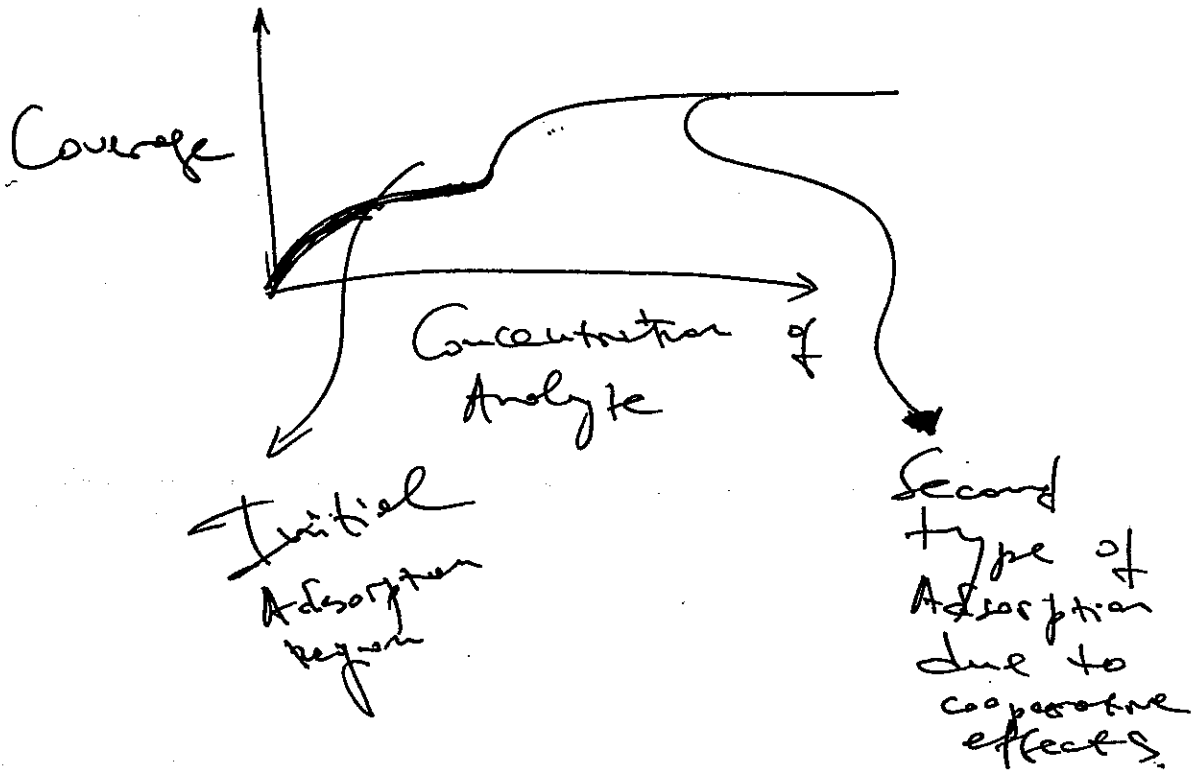 Coverage
Concentration of
Analyte
Initial
Adsorption
region
Second
type of
Adsorption
due to
cooperative
effects.